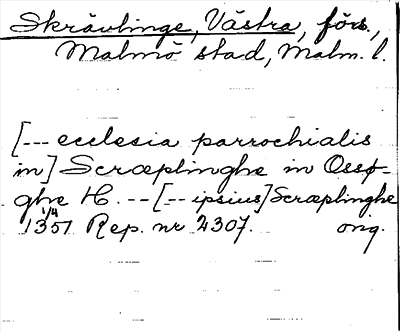 Skrävlinge, Västra, förs.,
Malmö stad, Malm. l.
[--- ecclesia parrochialis
in] Scræplinghe in Ossø-
ghe H. -- [-- ipsius] Scræplinghe
1/4
1351 Rep. nr 2307. orig.